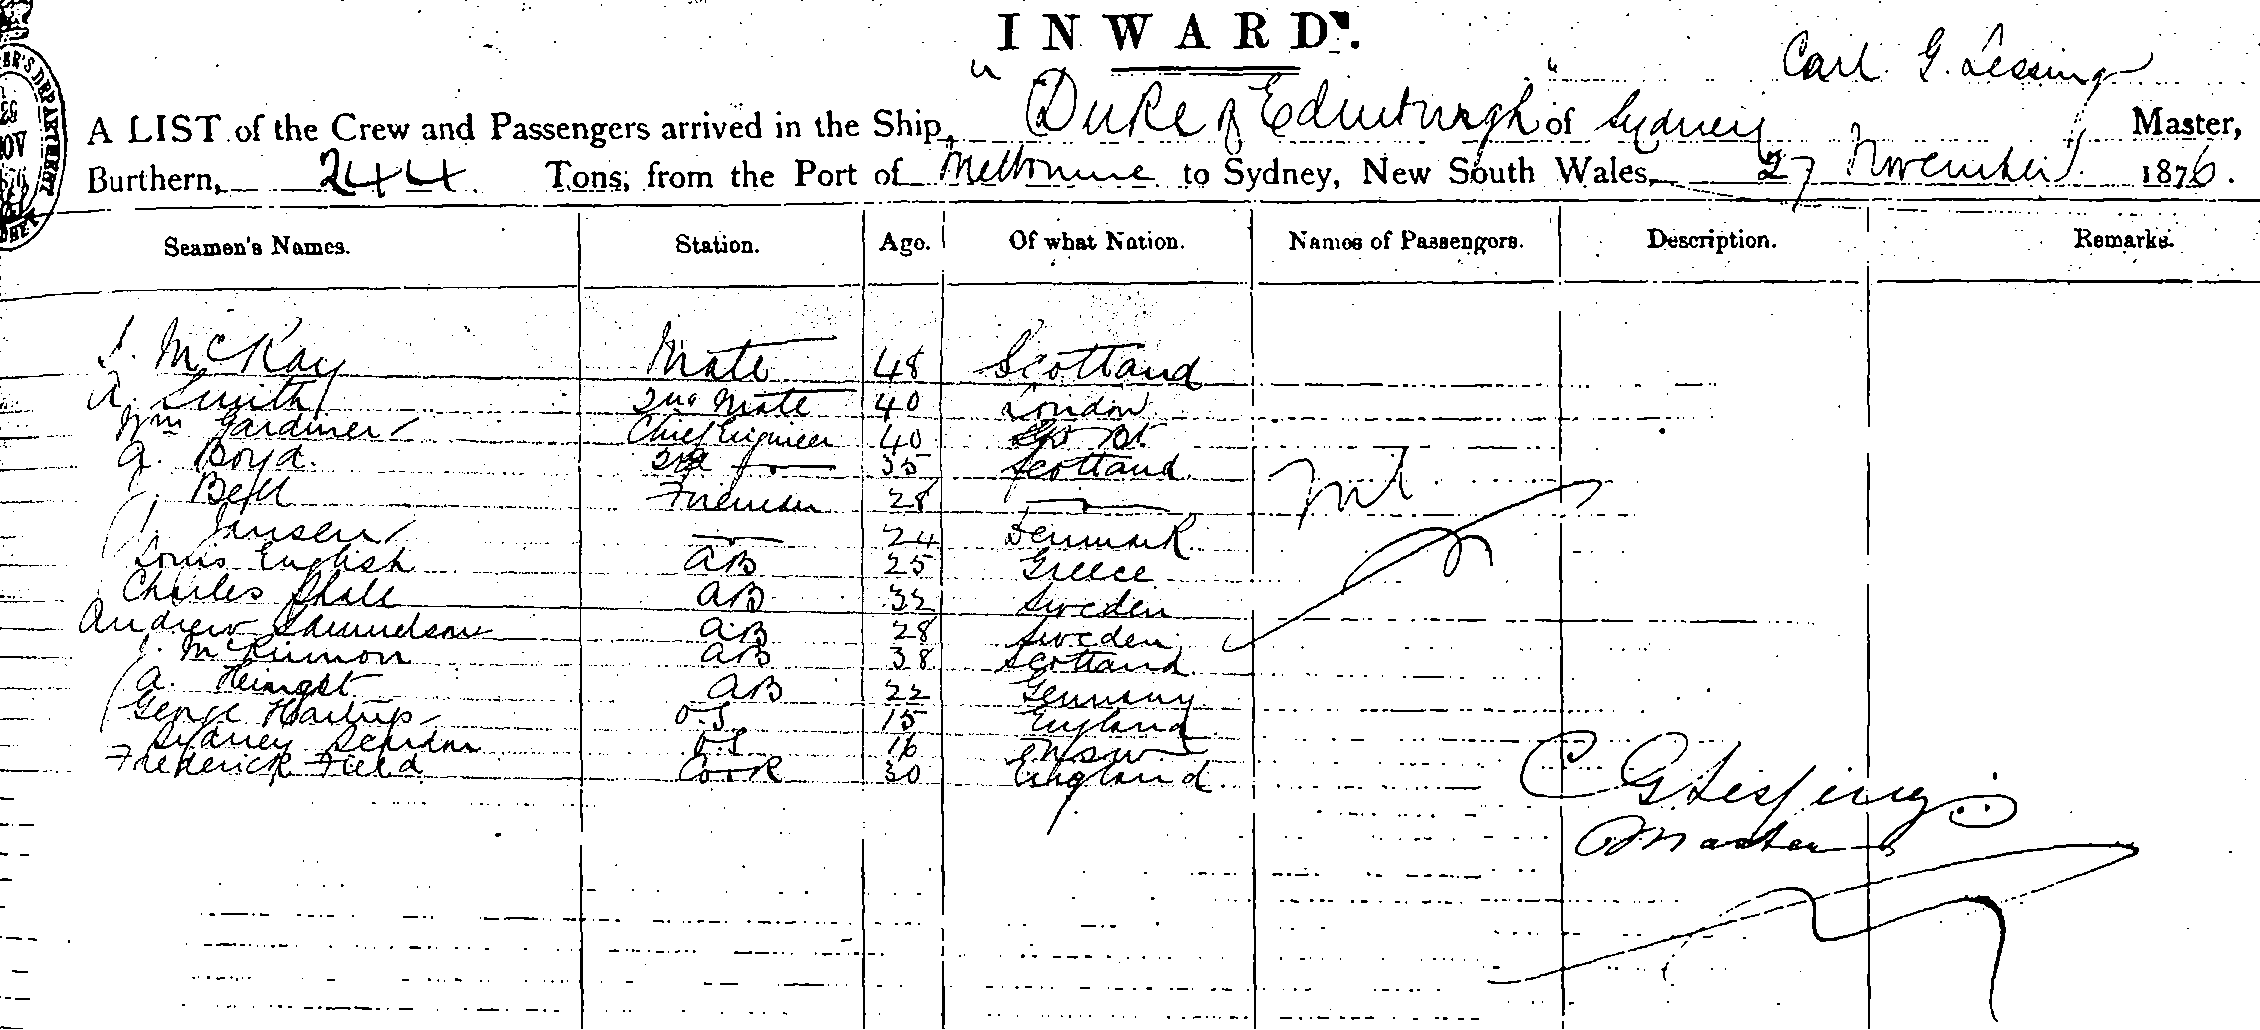 INWARD.
Carl G. Lessing
A LIST of the Crew and Passengers arrived in the Ship, "Duke of Edinburgh" of Sydney Master,
Burthern, 244 Tons, from the Port of Melbourne to Sydney, New South Wales, 27 November 1876.
Seamen's Names. Station. Age. Of what Nation. Names of Passengers. Description. Remarks.
McKay Mate 48 Scotland
A. Smith 2nd Mate 40 London
Wm Gardiner Chief Engineer 40
Boyd 2nd 35 Scotland
Bell Fireman 28
J. Jansen 24 Denmark
Louis English AB 25 Greece
Charles AB 32 Sweden
Andrew Samuelson AB 28 Sweden
J. McKinnon AB 38 Scotland
A. AB 22 Germany
George Hartup O.S 15 England
Sydney O.S 16 NSW
Frederick Field Cook 30 England
Nil
C G Lessing
Master